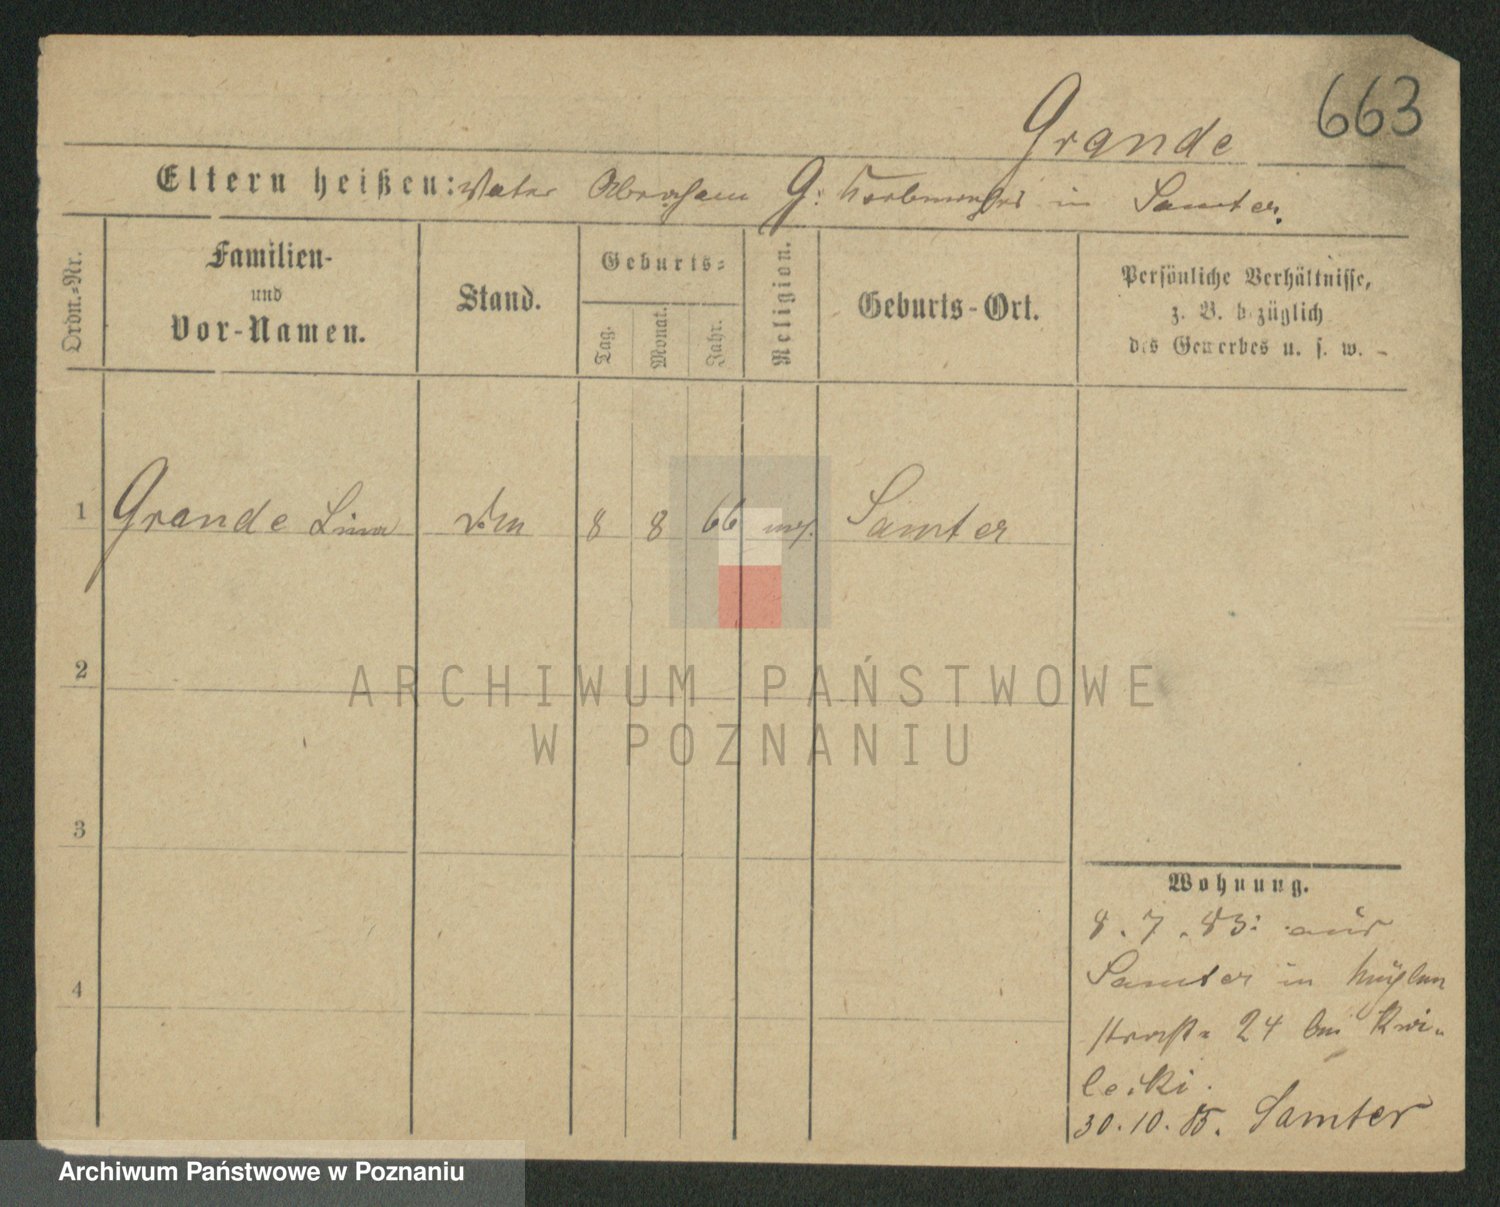 663
Grande
Eltern heißen: Vater Abraham G: Korbmacher in Samter.
Ordn.-Nr.
Familien-
und
Vor-Namen.
Stand.
Geburts-
Tag.
Monat.
Jahr.
Religion.
Geburts-Ort.
Persönliche Verhältnisse,
z. B. bezüglich
des Gewerbes u. s. w.
1 Grande Lina 8 8 66 mos. Samter
2
ARCHIWUM PAŃSTWOWE
W POZNANIU
3
4
Wohnung.
8. 7. 83: aus
Samter in Mühlen
straße 24 bei Kwi-
lecki.
30. 10. 85. Samter
Archiwum Państwowe w Poznaniu